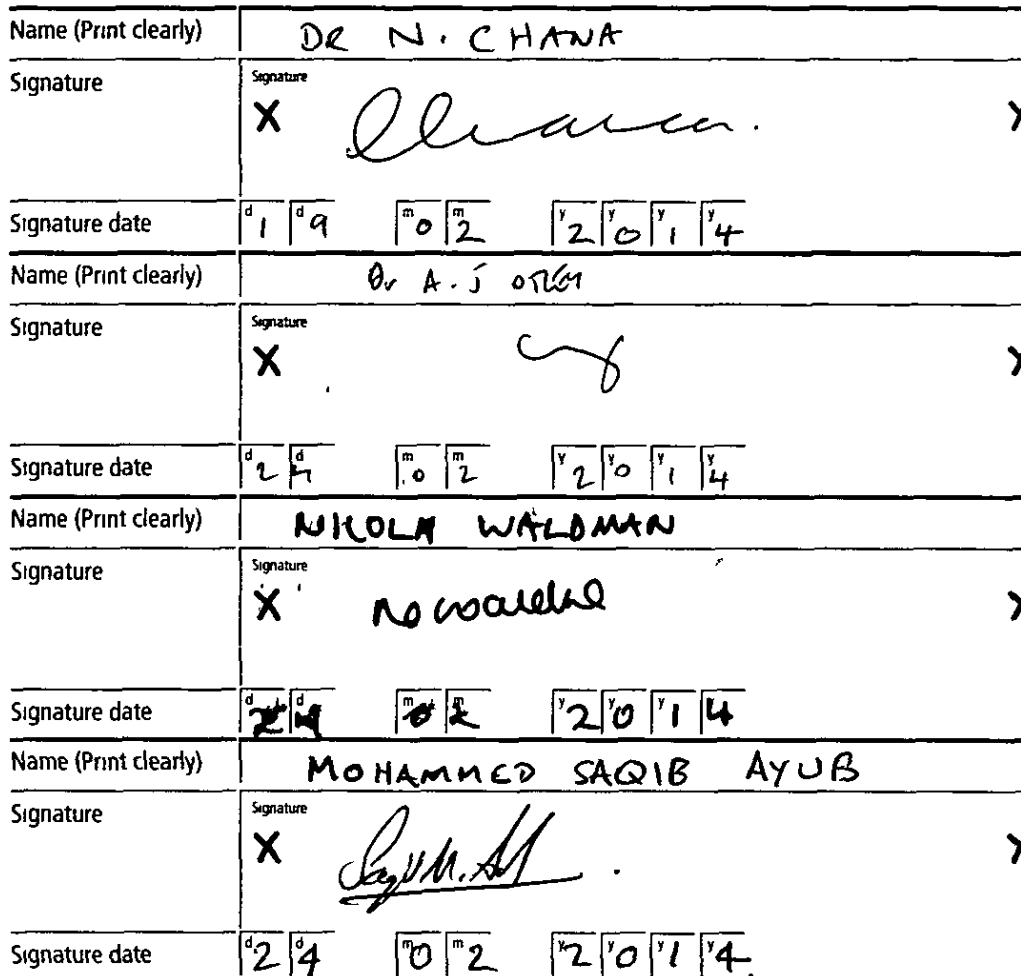 Name (Print clearly) DR N. CHANA
Signature Signature
X
Signature date d1 d9 m0 m2 y2 y0 y1 y4
Name (Print clearly) Dr A. J
Signature Signature
X
Signature date d2 d4 m0 m2 y2 y0 y1 y4
Name (Print clearly) NICOLA WALDMAN
Signature Signature
X
Signature date d2 d4 m0 m2 y2 y0 y1 y4
Name (Print clearly) MOHAMMED SAQIB AYUB
Signature Signature
X
Signature date d2 d4 m0 m2 y2 y0 y1 y4